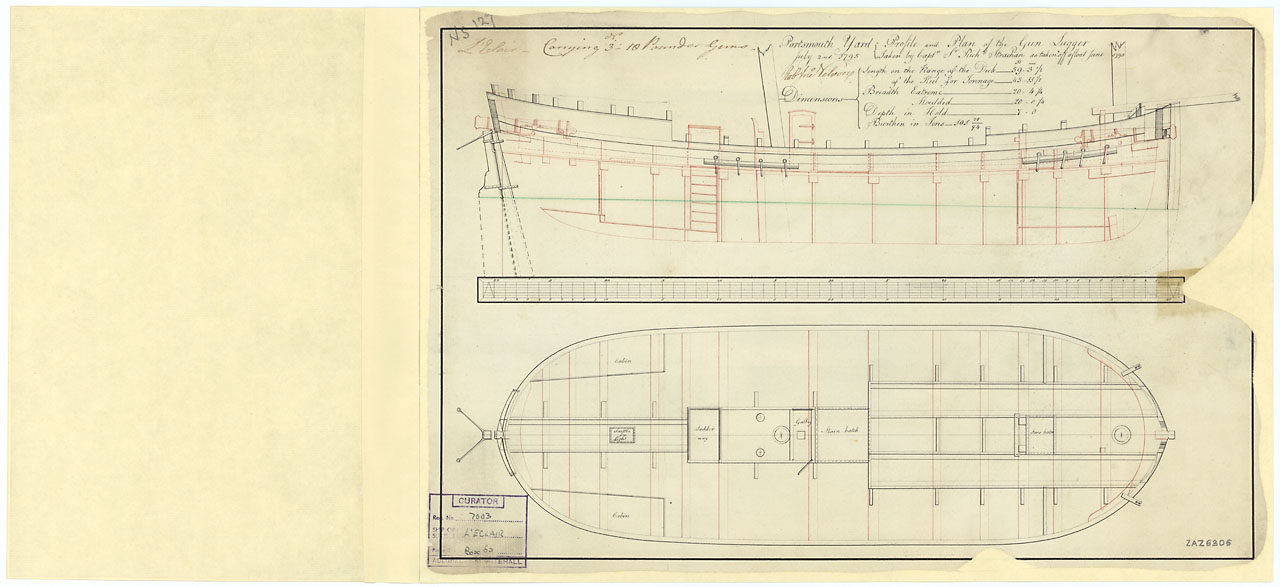 NS 127
L'Eclair - Carrying 3 - 18 Pounder Guns
Portsmouth Yard
July 2nd 1795
Profile and Plan of the Gun Lugger
Taken by Capt. Sr. Richd. Strachan as taken off afloat June 1795
Dimensions
Length on the Range of the Deck
of the Keel for Tonnage
Breadth Extreme 20 - 4
Moulded 20 - 0
Depth in Hold 7 - 0
Burthen in Tons
Cabin
Scuttle for Light
Ladder way
Gally
Main hatch
Fore hatch
Cabin
CURATOR
Reg. No. 7003
L'ECLAIR
Box 65
ZAZ6806